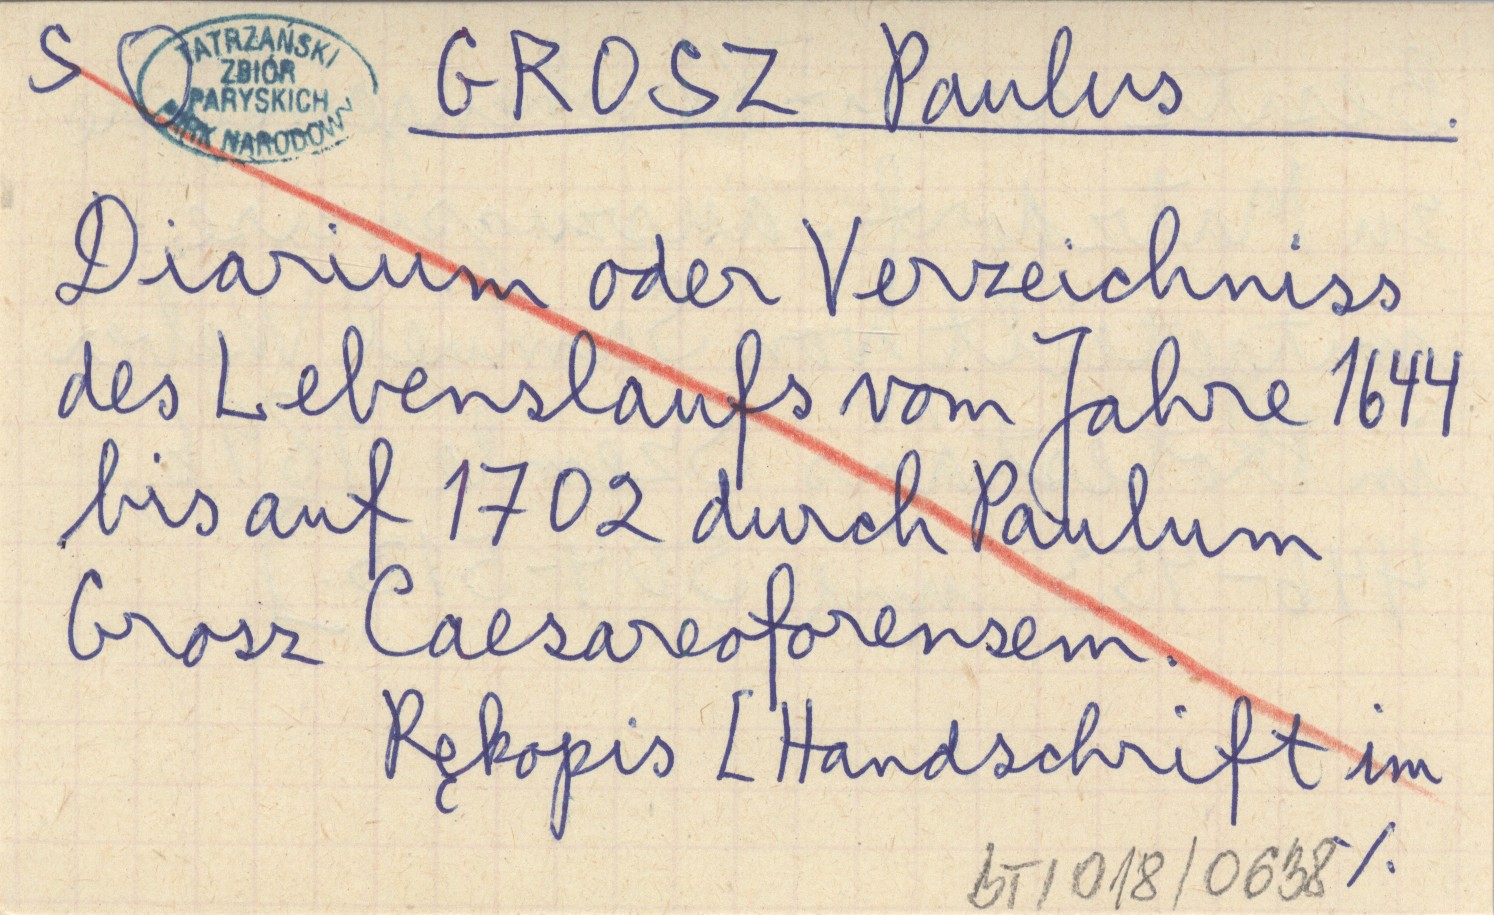 S O GROSZ Paulus .
TATRZAŃSKI
ZBIÓR
PARYSKICH
PARK NARODOWY
Diarium oder Verzeichniss
des Lebenslaufs vom Jahre 1644
bis auf 1702 durch Paulum
Grosz Caesareoforensem.
Rękopis [Handschrift im
BT/018/0638 ./.